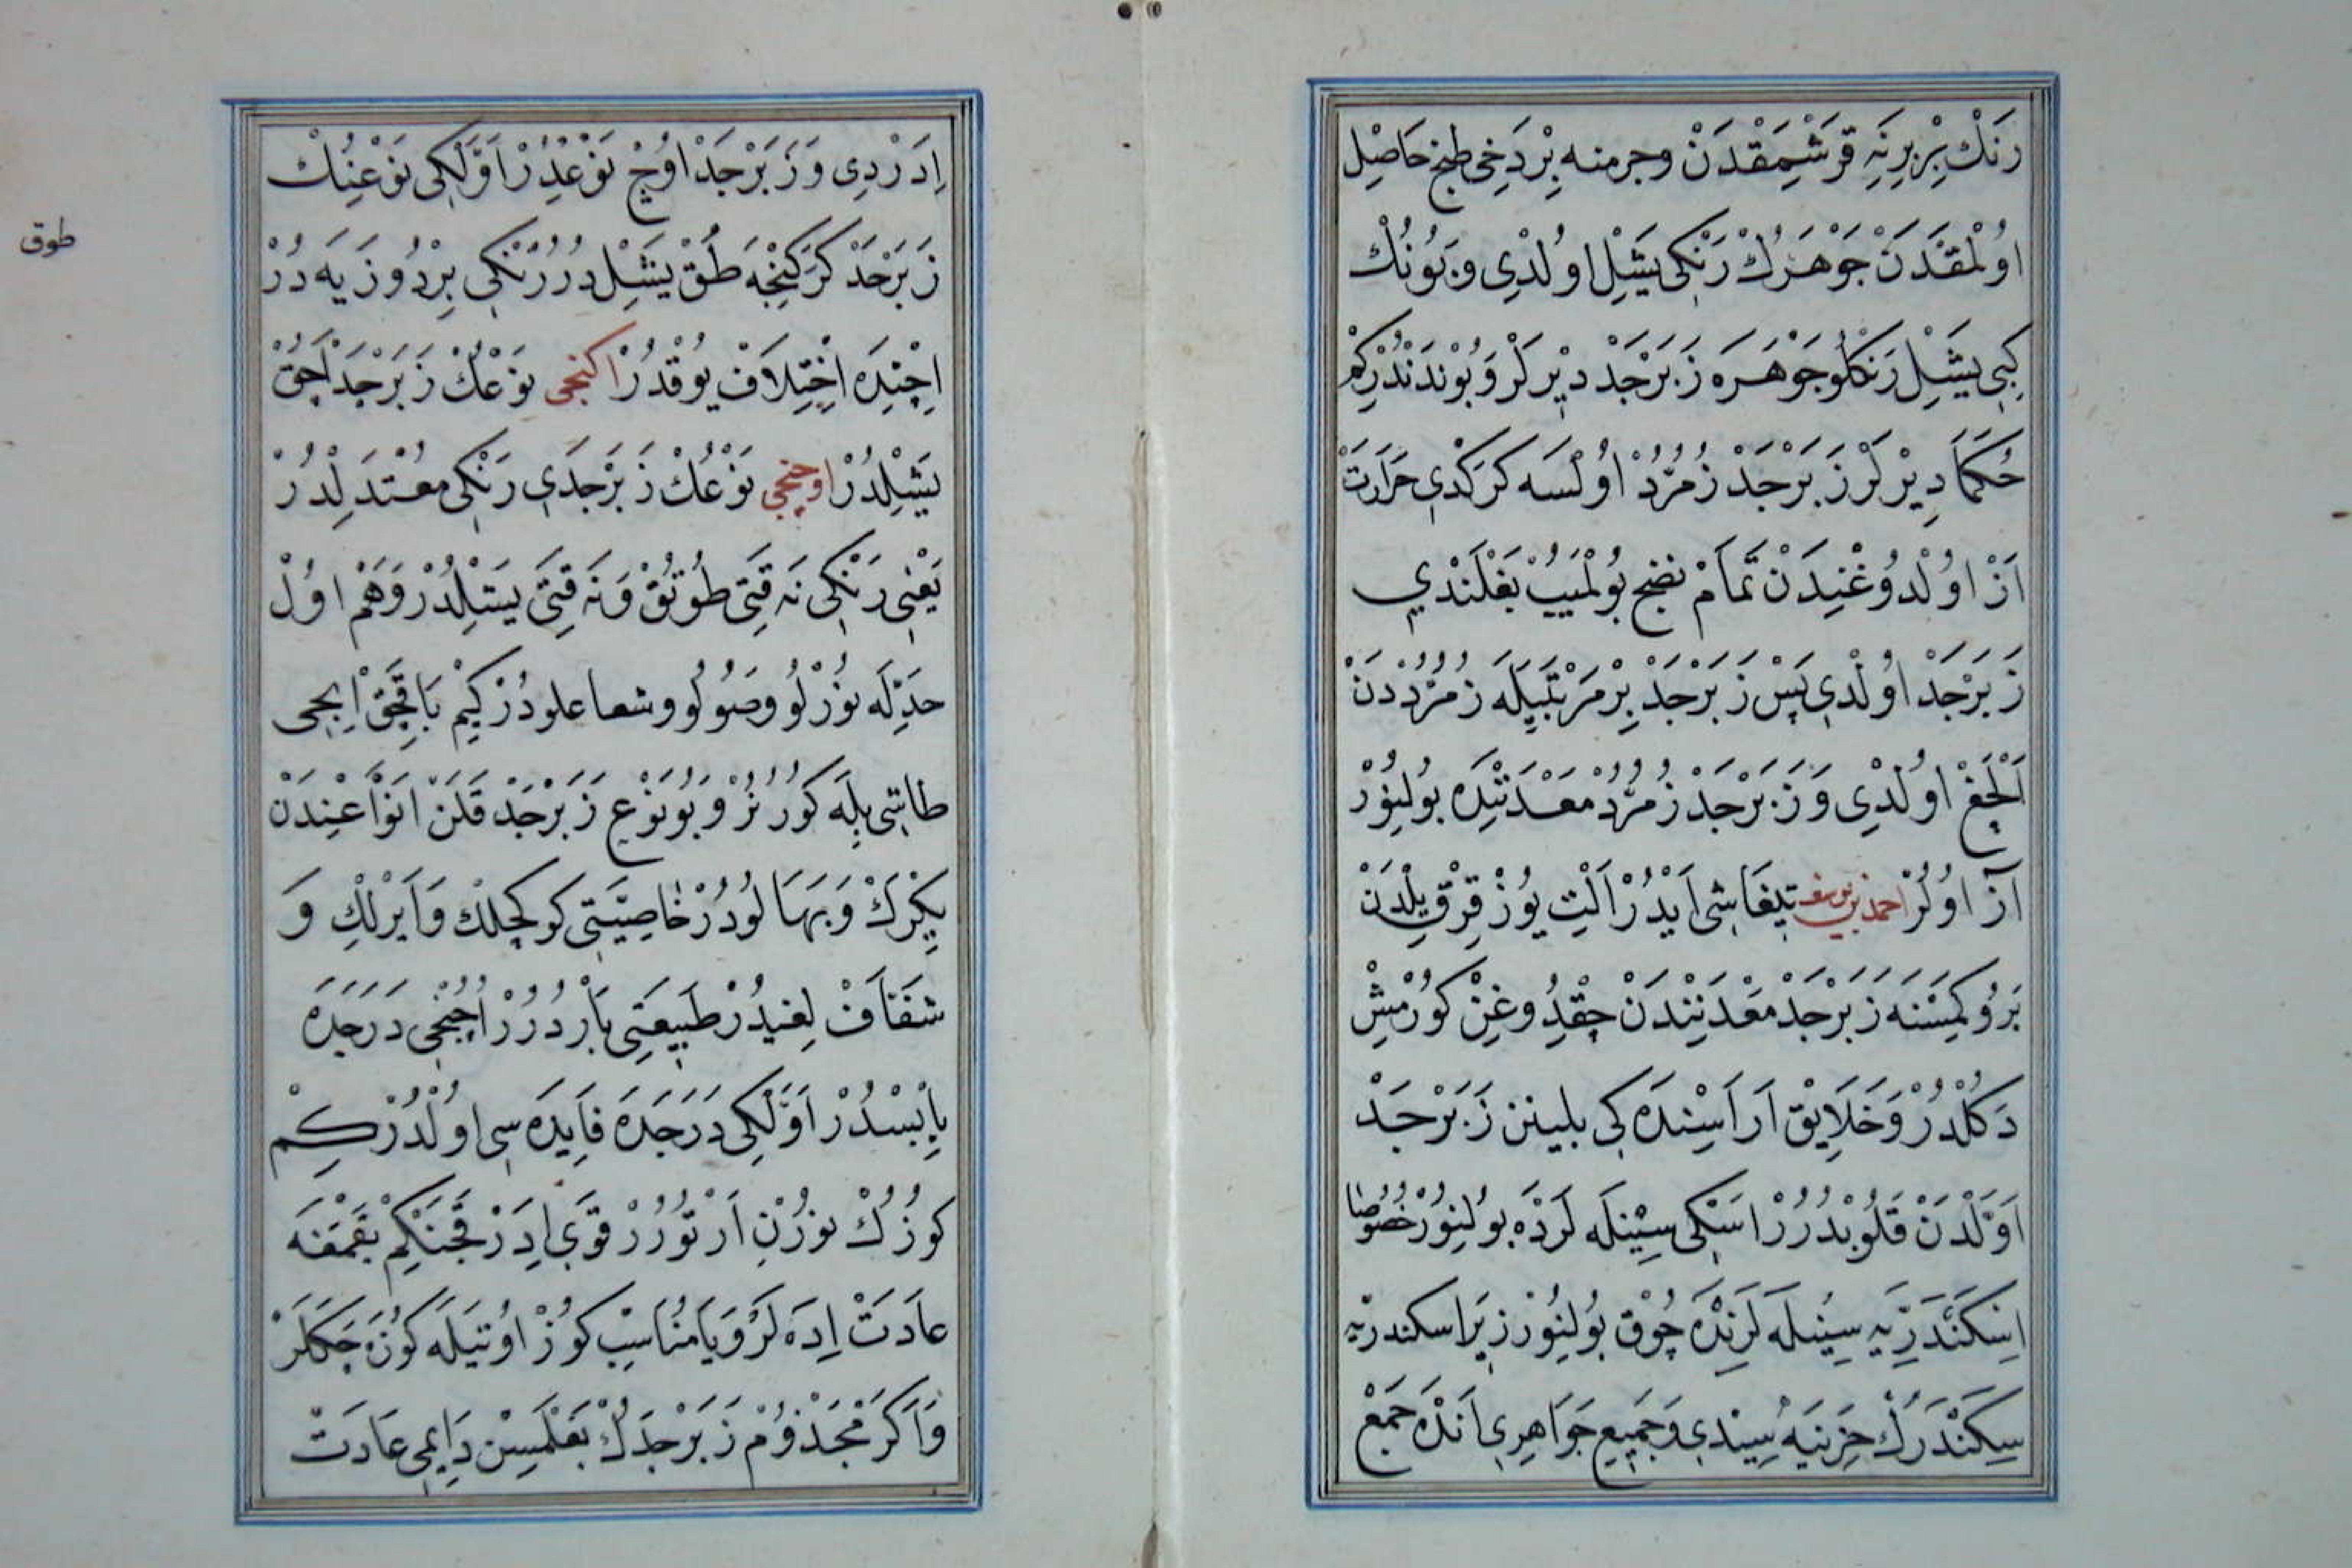 رَنْك بِرْبِرِنَه قَرَشْمَقْدَنْ وجرمنه بِرْدَخِى طبخ حَاصِل
اوُلْمَقْدَنْ جَوْهَرُكْ رَنْكِى يَشِلْ اوُلْدِى وَبُونُكْ
كِبِى يَشِلْ رَنْكلُو جَوْهَرَه زَبَرْجَدْ دِيرْلَرْ وَبُونْدَنْدُرْكِمْ
حُكَمَا دِيرْلَرْ زَبَرْجَدْ زُمُرُّدْ اوُلْسَه كَرَكْدِى حَرَارَتْ
اَزْ اوُلْدُوغُنِدَنْ تَمَامْ نضج بُولْمَيُبْ بَغْلَنْدِي
زَبَرْجَدْ اوُلْدِى پَسْ زَبَرْجَدْ بِرْمَرْتَبَيلَه زُمُرُّدْدَنْ
اَلْچَغْ اوُلْدِى وَزَبَرْجَدْ زُمُرُّدْ مَعْدَنِنْدَه بُولِنُورْ
آزْ اوُلُرْ احمد بن يوسف تيفَاشِى اَيْدُرْ اَلْتِ يُوزْ قِرْقْ يِلْدَنْ
بَرُو كِمْسَنَه زَبَرْجَدْ مَعْدَنِنْدَنْ چِقْدُوغِنْ كُورْمِشْ
دَكُلْدُرْ وَخَلَايِقْ اَرَاسِنْدَه كِى بلينن زَبَرْجَدْ
اَوَّلْدَنْ قَلُوبْدُرُرْ اَسْكِى سِينلَه لَرْدَه بُولِنُورْ خُصُوصًا
اِسْكَنْدَرِيَه سِينلَه لَرِنْدَه چُوقْ بُولِنُورْ زِيرَا اسكندريه
سِكَنْدَرُكْ خَزِينَه سِيدِى وَجَمِيعِ جَوَاهِرِى اَنْدَه جَمْعْ
اِدَرْدِى وَزَبَرْجَدْ اوُچْ نَوْعْدُرْ اَوَّلْكِى نَوْعِنُكْ
طوق
زَبَرْجَدْ كَرَكِنْجَه طُقْ يَشِلْدُرُرْ رَنْكِى بِرْدُوزَيَه دُرْ
اِچِنْدَه اِخْتِلَافْ يُوقْدُرْ اكنجى نَوْعُكْ زَبَرْجَدْ اَچُقْ
يَشِلْدُرْ اوچنجى نَوْعُكْ زَبَرْجَدِى رَنْكِى مُعْتَدِلْدُرْ
يَعْنِى رَنْكِى نَه قَتِى طُوتُقْ وَنَه قَتِى يَشِلْدُرْ وَهَمْ اوُلْ
حَدِّلَه نُورْلُو وصُولُو وشعاعلودُرْ كِيمْ بَاقِجَقْ اِيچِى
طَاشِى بِلَه كُورُنُرْ وَبُو نَوْعِ زَبَرْجَدْ قَلَنْ اَنْوَاعْنِدَنْ
يِكْرَكْ وَبَهَا لُودُرْ خَاصِيَّتِى كوكچلك وَاَيْرِلكِ وَ
شَفَّافْ لِغيدُرْ طَبِيعَتِى بَارِدْدُرُرْ اُچُنْجِى دَرَجَدَه
يَابِسْدُرْ اَوَّلْكِى دَرَجَدَه فَايِدَه سِى اوُلْدُرْكِمْ
كُوزُكْ نُورُنِ اَرْتُورُرْ قَوِى اِدَرْ قَچَنْكِمْ بَقْمَغَه
عَادَتْ اِدَه لَرْ وَيَا مُنَاسِبْ كُوزْ اوُتيلَه كُوزَه چَكَلَرْ
وَاَكَرْ مَجْذُومْ زَبَرْجَدُكْ بَقْلَمَسِنْ دَايِمِى عَادَتْ